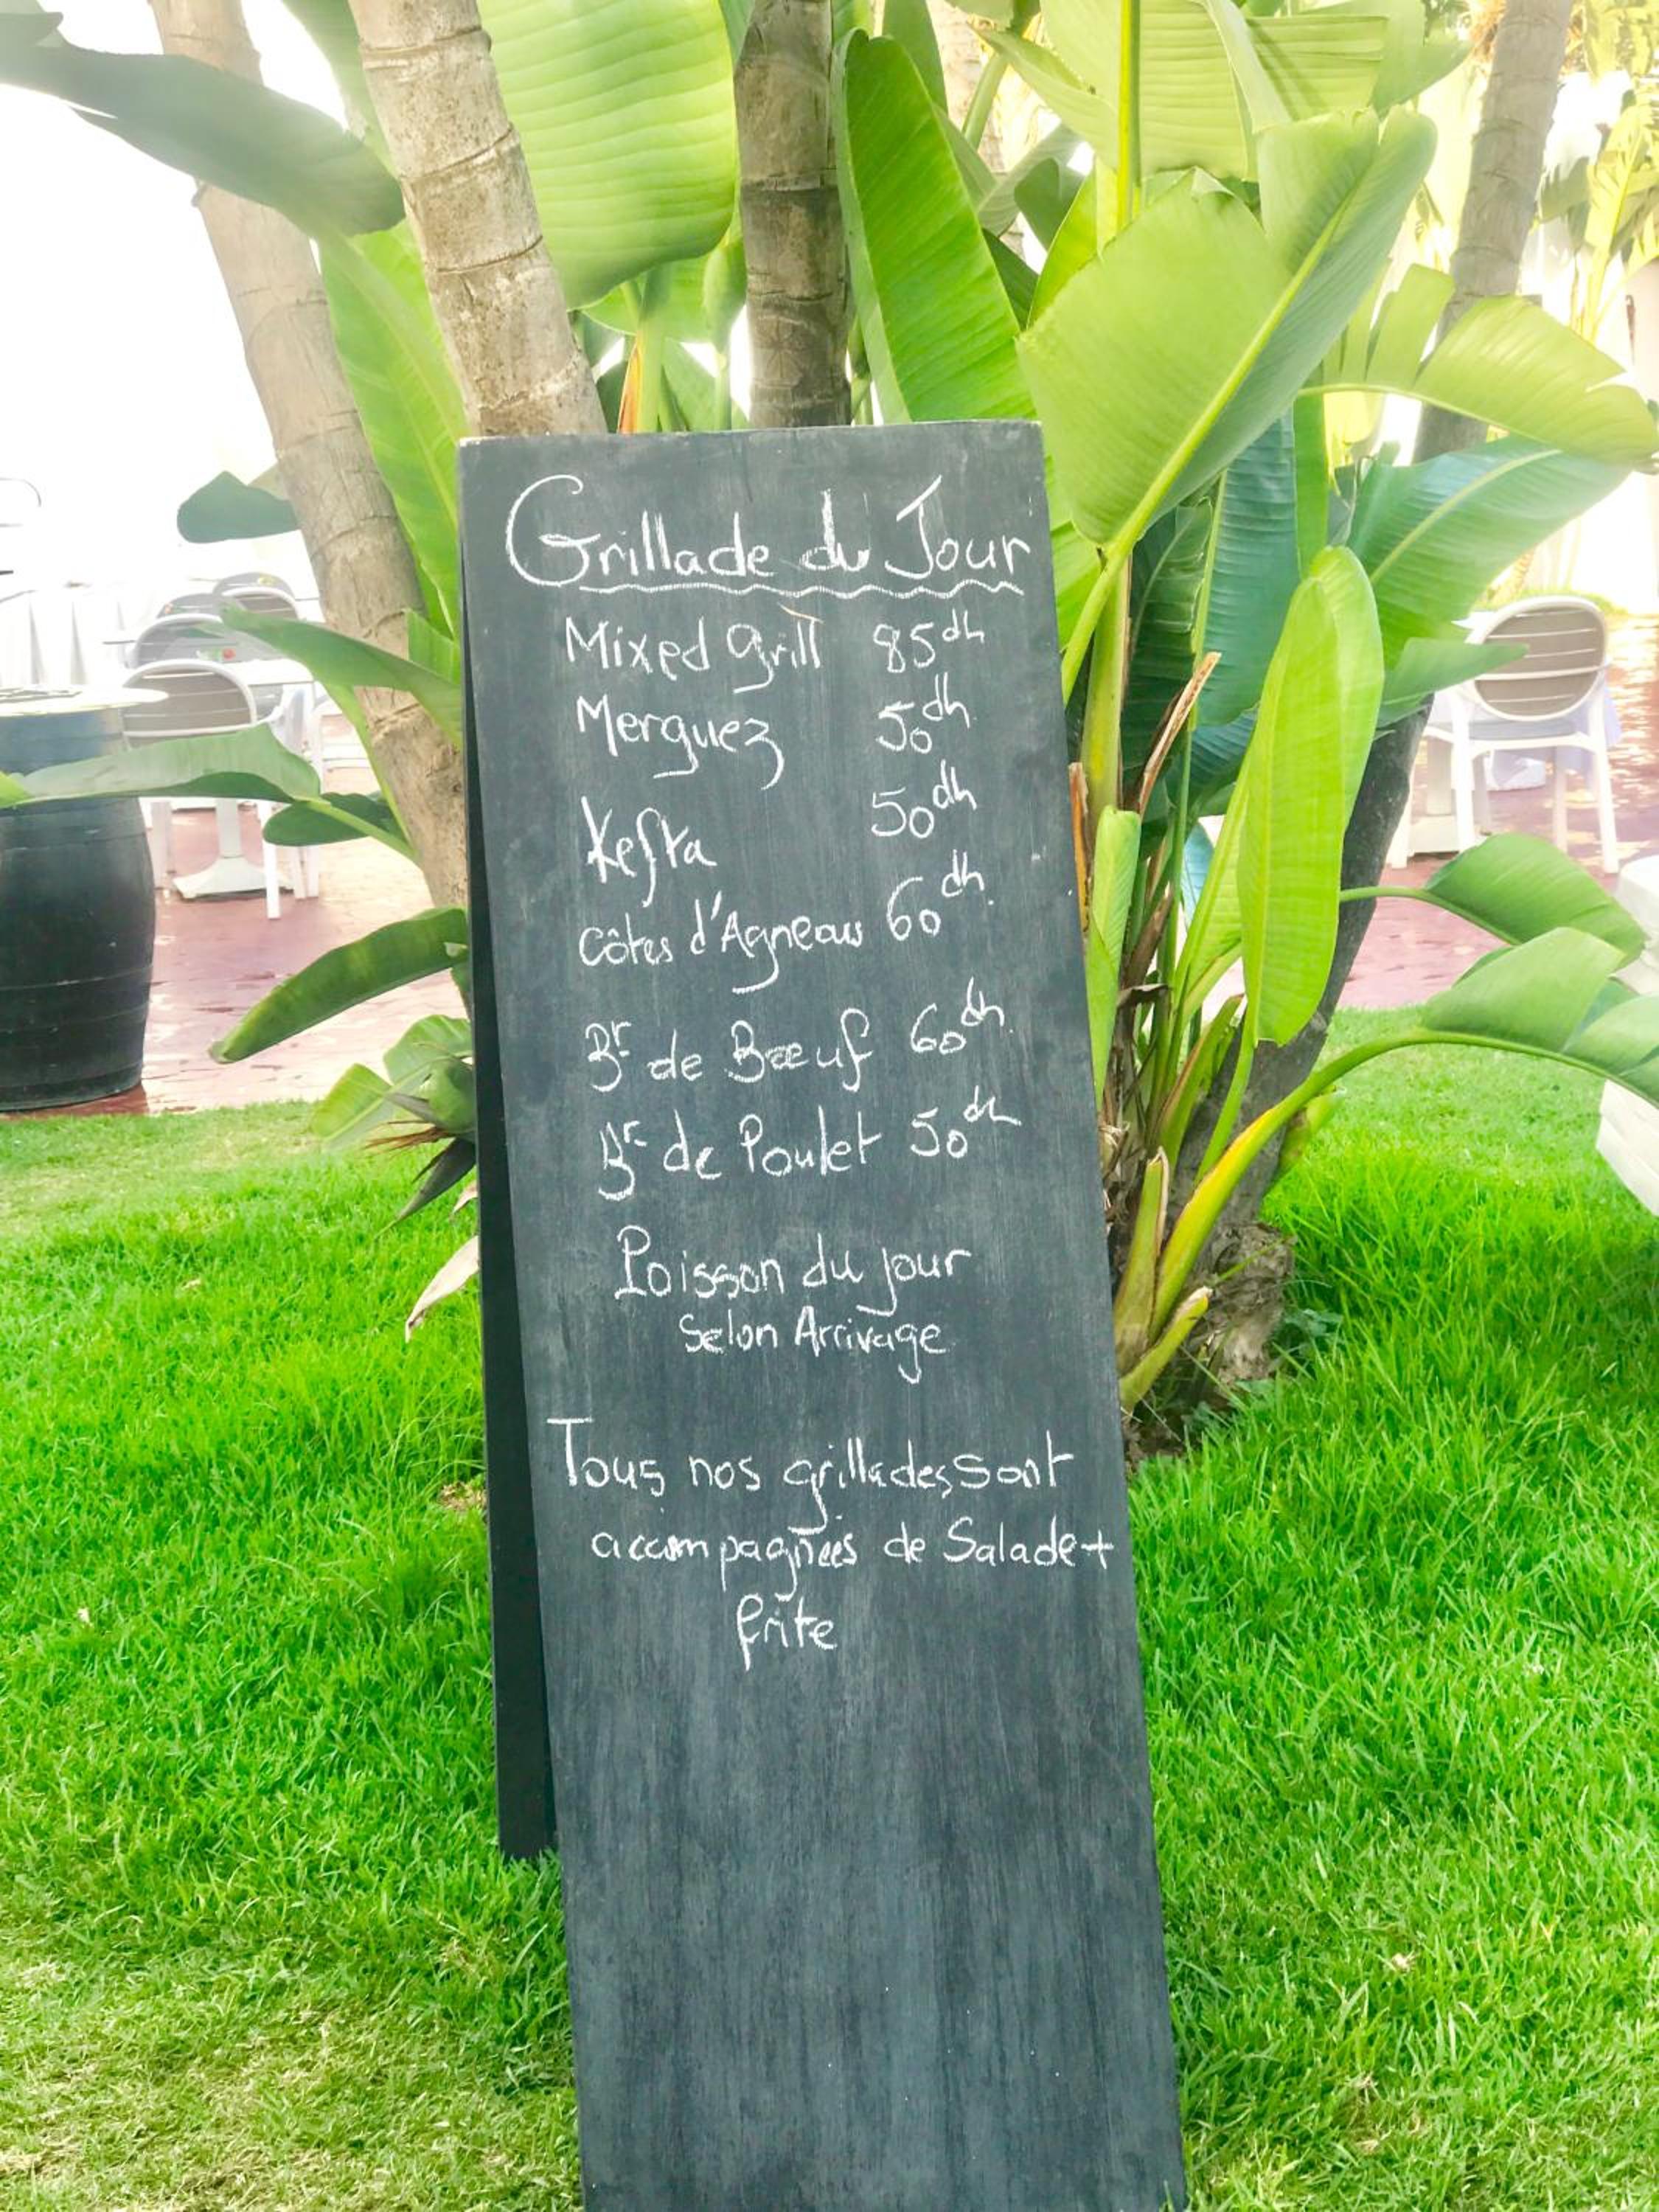 Grillade du Jour
Mixed Grill 85dh
Merguez 50dh
Kefta 50dh
Côtes d'Agneau 60dh
Br de Bœuf 60dh
Br de Poulet 50dh
Poisson du jour
Selon Arrivage
Tous nos grillades sont
accompagnées de Salade +
frite